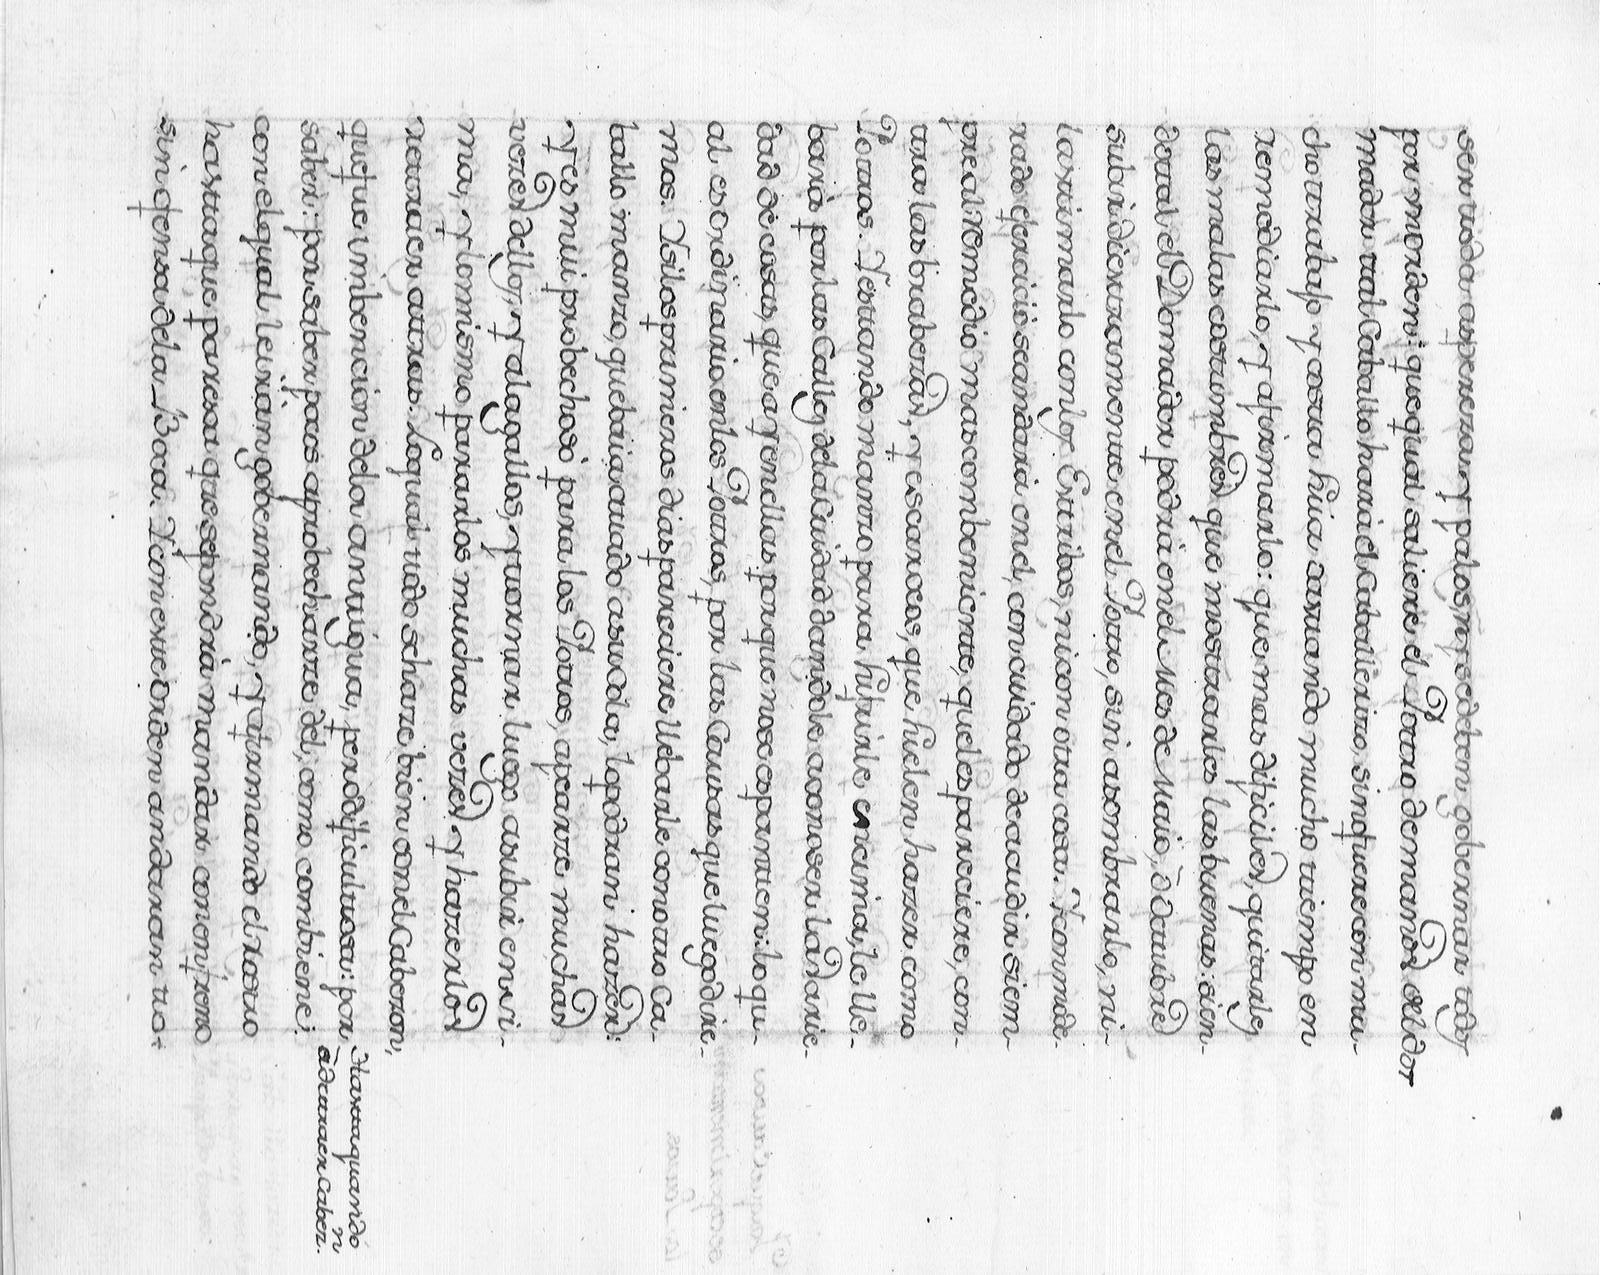 sen toda aspereza y palos, no se deben gobernar todos
por un orden: que qual saliere el Potro de manos del dor
mador tal Caballo hará el Caballerizo, sin que con mu-
cho trabajo y costa suia, gastando mucho tiempo en
remediarlo, y afirmarlo: que mas dificil es, quitarles
las malas costumbres que mostrarles las buenas: sien-
do tal el Domador podrá en el mes de Maio, ò Octubre
subir diestramente en el Potro, sin asombrarlo, ni
lastimarlo con los Estribos, ni con otra cosa. Y con mode-
rado exercicio se andará en el, con cuidado de acudir siem-
pre al remedio mas combeniente, que les pareciere, con-
tra las brabezas, y escarceos, que suelen hazer como
Potros. Y estando manso para subirle encima, le lle-
bará por las Calles de la Ciudad dandole a conoser la varie-
dad de cosas, que ay en ellas porque no se espanten: lo qu-
al es ordinario en los Potros, por las Causas que luego dire-
mos. Y si los primeros dias pareciere llebarle como otro Ca-
ballo manso, que baia atado a su Cola, lo podran hazer:
y es mui probechoso para los Potros, apearse muchas
vezes dellos, y alagallos, y tornar luego a subir en si-
ma, y lo mismo pararlos muchas vezes y hazerlos
reparar atras. Lo qual todo se haze bien con el Cabezon,
que fue imbencion de los antiguos, pero dificultosa: por
saber: por saber pocos aprobecharse del, como combiene:
con el qual le irán gobernando, y afirmando el rostro
hasta que paresca que se pondrá mandar con en freno
sin ofensa de la Boca. Y si no este orden andaran to-
Hasta quando
n
a de traer Cabez.